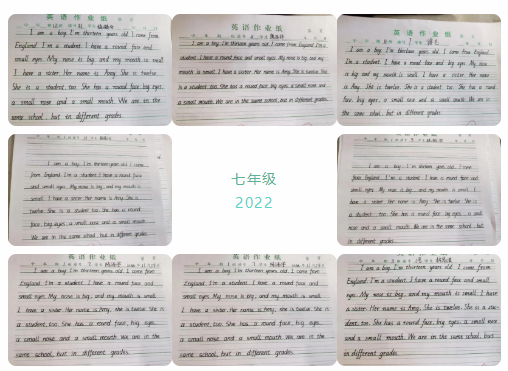 英语作业纸
I am a boy. I'm thirteen years old. I come from
England. I'm a student. I have a round face and
small eyes. My nose is big, and my mouth is small.
I have a sister. Her name is Amy. She is twelve.
She is a student, too. She has a round face, big eyes,
a small nose and a small mouth. We are in the
same school, but in different grades.
英语作业纸
I am a boy. I'm thirteen years old. I come from England. I'm a
student. I have a round face and small eyes. My nose is big, and my
mouth is small. I have a sister. Her name is Amy. She is twelve. She
is a student too. She has a round face, big eyes, a small nose and
a small mouth. We are in the same school, but in different grades.
英语作业纸
I am a boy. I'm thirteen years old. I come from England.
I'm a student. I have a round face and big eyes. My nose
is big and my mouth is small. I have a sister. Her name
is Amy. She is twelve. She is a student, too. She has a round
face, big eyes, a small nose and a small mouth. We are in
the same school, but in different grades.
I am a boy. I'm thirteen years old. I come
from England. I'm a student. I have a round face
and small eyes. My nose is big, and my mouth is
small. I have a sister. Her name is Amy. She is
twelve. She is a student too. She has a round face,
big eyes, a small nose and a small mouth.
We are in the same school, but in different grades.
七年级
2022
I am a boy. I'm thirteen years old. I come
from England. I'm a student. I have a round face and
small eyes. My nose is big, and my mouth is small. I
have a sister. Her name is Amy. She is twelve. She is
a student, too. She has a round face, big eyes, a small
nose and a small mouth. We are in the same school, but
in different grades.
英语作业纸
I am a boy. I'm thirteen years old. I come from
England. I'm a student. I have a round face and
small eyes. My nose is big, and my mouth is small.
I have a sister. Her name is Amy, she is twelve. She is
a student, too. She has a round face, big eyes,
a small nose and a small mouth. We are in the
same school, but in different grades.
英语作业纸
I am a boy. I'm thirteen years old. I come from
England. I'm a student. I have a round face and
small eyes. My nose is big, and my mouth is small.
I have a sister. Her name is Amy, she is twelve. She is
a student, too. She has a round face, big eyes,
a small nose and a small mouth. We are in the
same school, but in different grades.
英语作业纸
I am a boy. I'm thirteen years old. I come from
England. I'm a student. I have a round face and small
eyes. My nose is big, and my mouth is small. I have
a sister. Her name is Amy. She is twelve. She is a stu-
dent, too. She has a round face, big eyes, a small nose
and a small mouth. We are in the same school, but
in different grades.